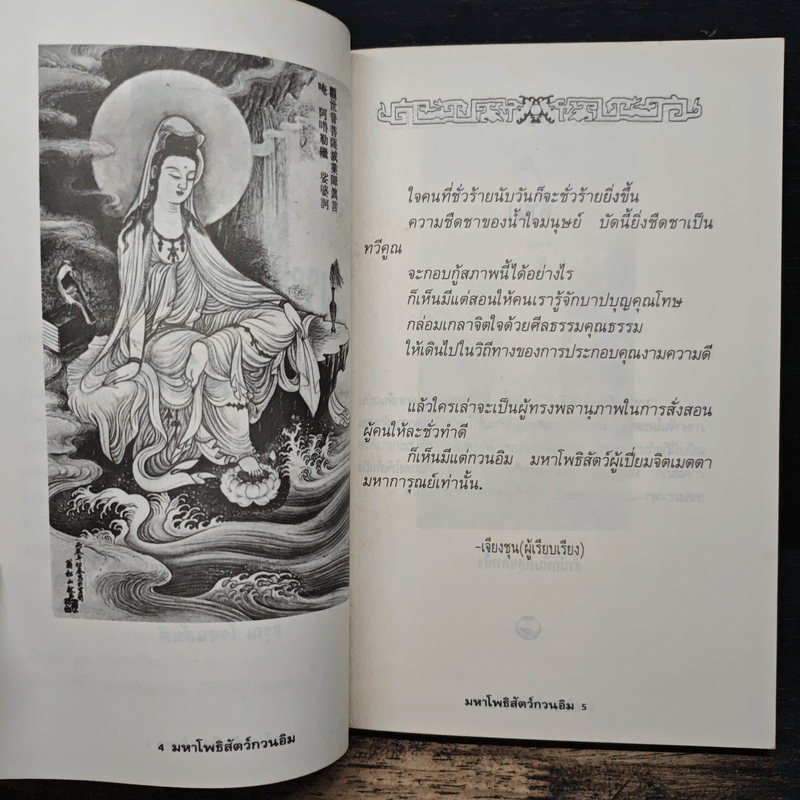 觀世音菩薩滅業障真言
唵 阿嚕勒繼 娑婆訶
4 มหาโพธิสัตว์กวนอิม
ใจคนที่ชั่วร้ายนับวันก็จะชั่วร้ายยิ่งขึ้น
ความชืดชาของน้ำใจมนุษย์ บัดนี้ยิ่งชืดชาเป็น
ทวีคูณ
จะกอบกู้สภาพนี้ได้อย่างไร
ก็เห็นมีแต่สอนให้คนเรารู้จักบาปบุญคุณโทษ
กล่อมเกลาจิตใจด้วยศีลธรรมคุณธรรม
ให้เดินไปในวิถีทางของการประกอบคุณงามความดี
แล้วใครเล่าจะเป็นผู้ทรงพลานุภาพในการสั่งสอน
ผู้คนให้ละชั่วทำดี
ก็เห็นมีแต่กวนอิม มหาโพธิสัตว์ผู้เปี่ยมจิตเมตตา
มหาการุณย์เท่านั้น.
-เจียงชุน(ผู้เรียบเรียง)
มหาโพธิสัตว์กวนอิม 5